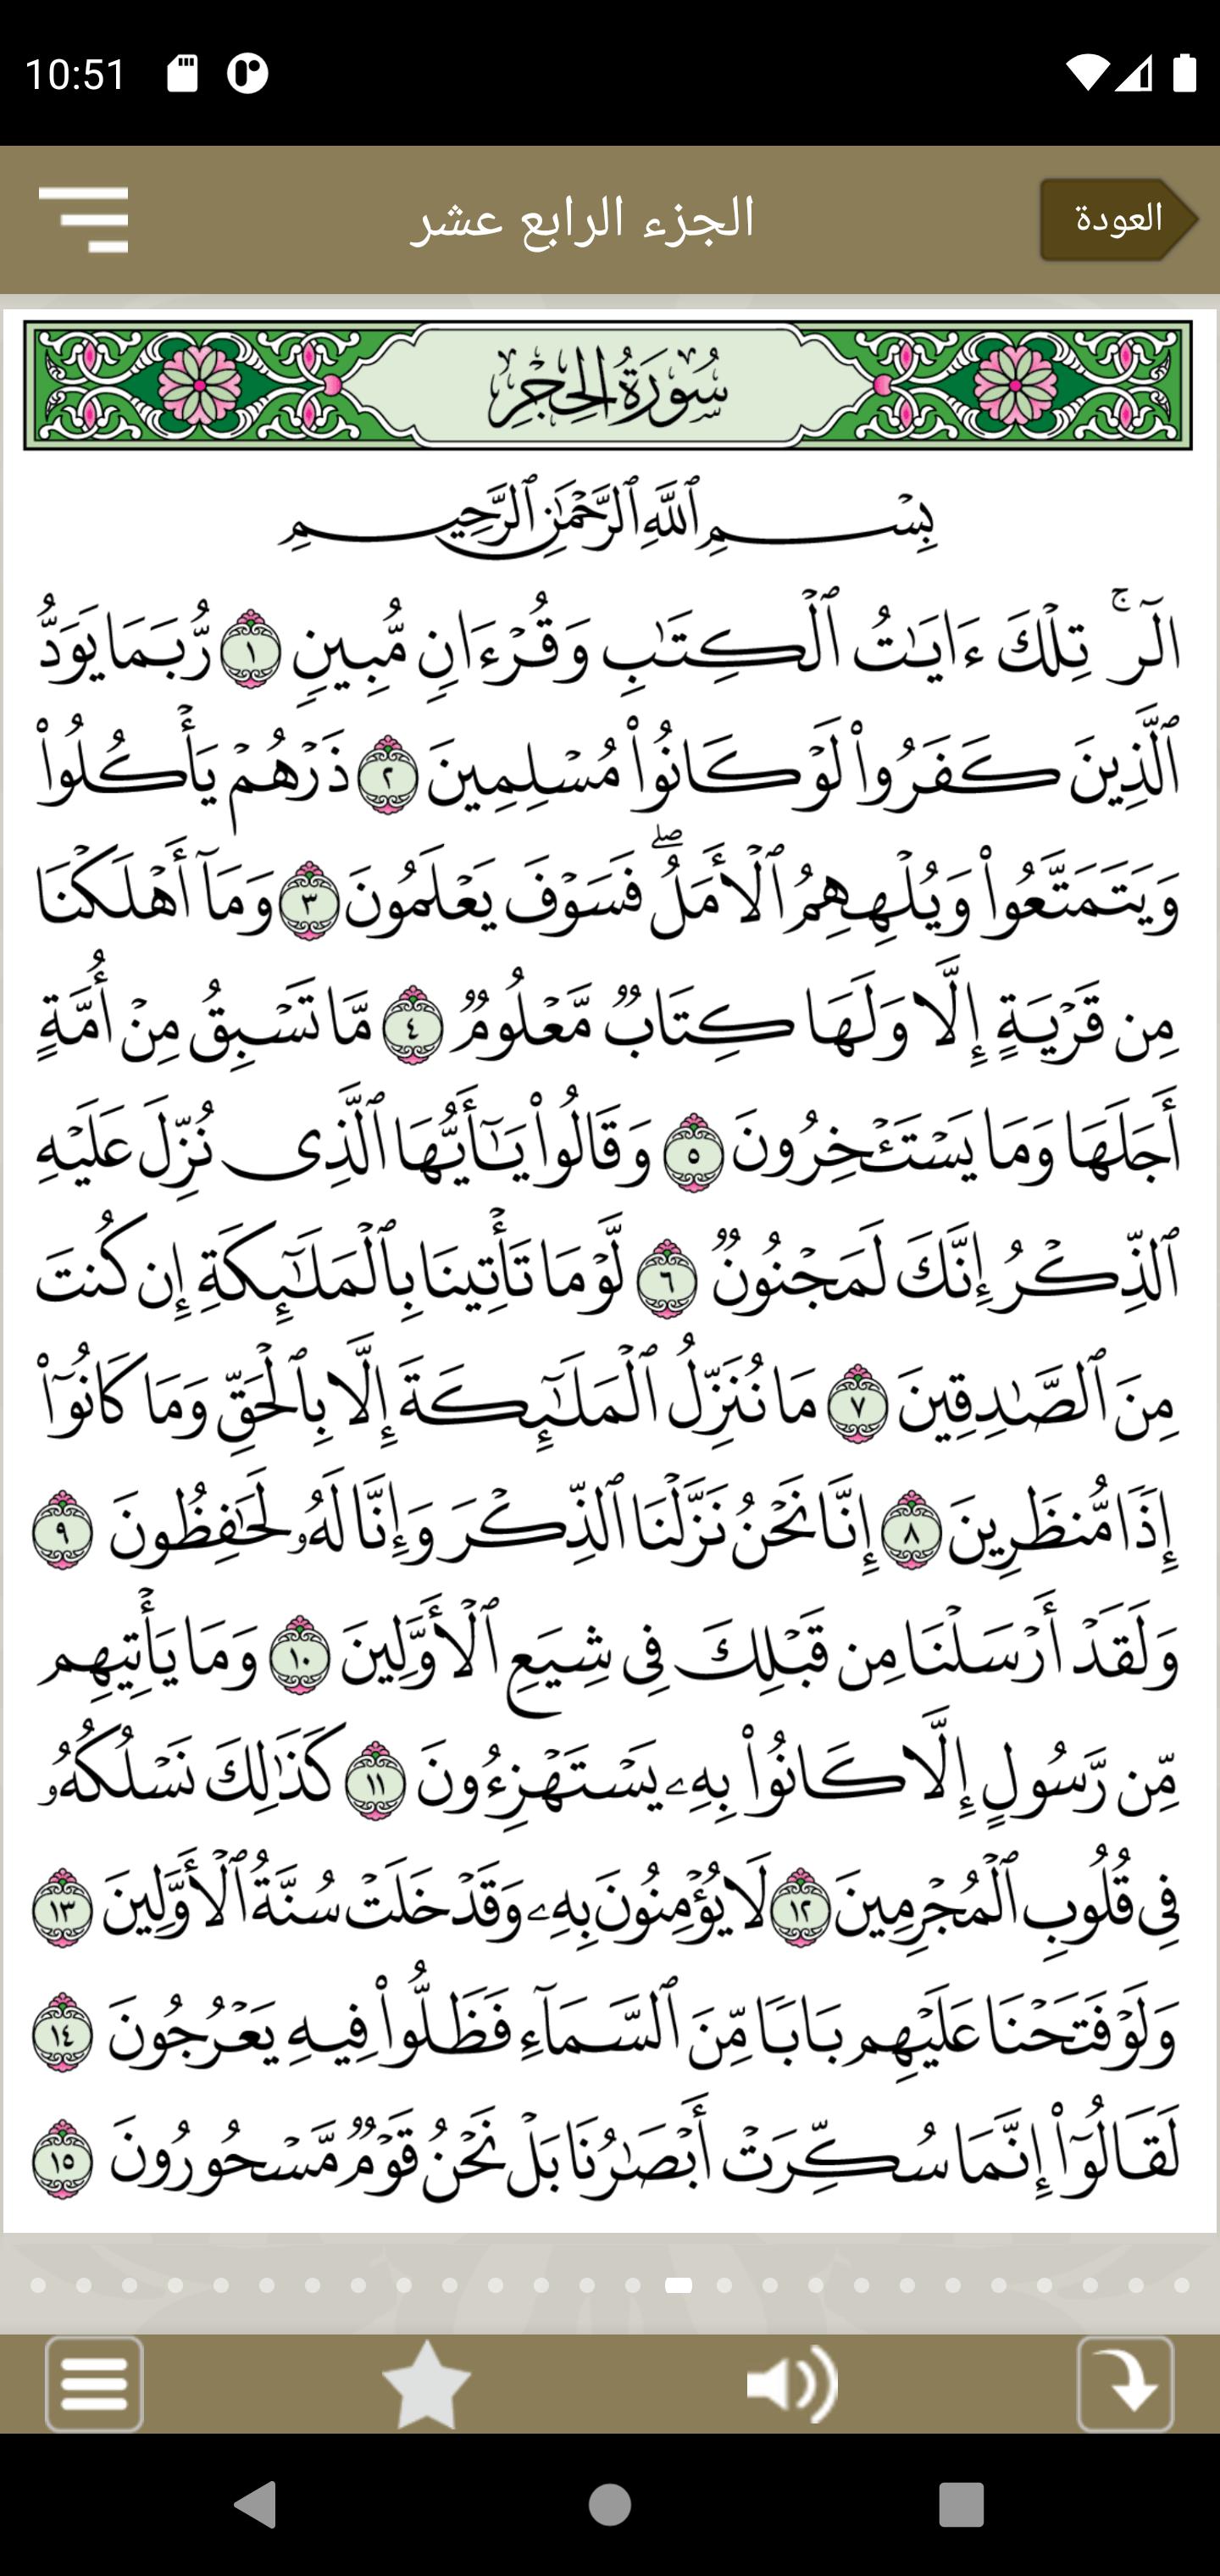 10:51
العودة
الجزء الرابع عشر
سُورَةُ الحِجْرِ
بِسْمِ ٱللَّهِ ٱلرَّحْمَٰنِ ٱلرَّحِيمِ
الٓرۚ تِلْكَ ءَايَٰتُ ٱلْكِتَٰبِ وَقُرْءَانٍ مُّبِينٍ ١ رُّبَمَا يَوَدُّ
ٱلَّذِينَ كَفَرُوا۟ لَوْ كَانُوا۟ مُسْلِمِينَ ٢ ذَرْهُمْ يَأْكُلُوا۟
وَيَتَمَتَّعُوا۟ وَيُلْهِهِمُ ٱلْأَمَلُۖ فَسَوْفَ يَعْلَمُونَ ٣ وَمَآ أَهْلَكْنَا
مِن قَرْيَةٍ إِلَّا وَلَهَا كِتَابٌ مَّعْلُومٌ ٤ مَّا تَسْبِقُ مِنْ أُمَّةٍ
أَجَلَهَا وَمَا يَسْتَـْٔخِرُونَ ٥ وَقَالُوا۟ يَٰٓأَيُّهَا ٱلَّذِى نُزِّلَ عَلَيْهِ
ٱلذِّكْرُ إِنَّكَ لَمَجْنُونٌ ٦ لَّوْ مَا تَأْتِينَا بِٱلْمَلَٰٓئِكَةِ إِن كُنتَ
مِنَ ٱلصَّٰدِقِينَ ٧ مَا نُنَزِّلُ ٱلْمَلَٰٓئِكَةَ إِلَّا بِٱلْحَقِّ وَمَا كَانُوٓا۟
إِذًا مُّنظَرِينَ ٨ إِنَّا نَحْنُ نَزَّلْنَا ٱلذِّكْرَ وَإِنَّا لَهُۥ لَحَٰفِظُونَ ٩
وَلَقَدْ أَرْسَلْنَا مِن قَبْلِكَ فِى شِيَعِ ٱلْأَوَّلِينَ ١٠ وَمَا يَأْتِيهِم
مِّن رَّسُولٍ إِلَّا كَانُوا۟ بِهِۦ يَسْتَهْزِءُونَ ١١ كَذَٰلِكَ نَسْلُكُهُۥ
فِى قُلُوبِ ٱلْمُجْرِمِينَ ١٢ لَا يُؤْمِنُونَ بِهِۦ وَقَدْ خَلَتْ سُنَّةُ ٱلْأَوَّلِينَ ١٣
وَلَوْ فَتَحْنَا عَلَيْهِم بَابًا مِّنَ ٱلسَّمَآءِ فَظَلُّوا۟ فِيهِ يَعْرُجُونَ ١٤
لَقَالُوٓا۟ إِنَّمَا سُكِّرَتْ أَبْصَٰرُنَا بَلْ نَحْنُ قَوْمٌ مَّسْحُورُونَ ١٥